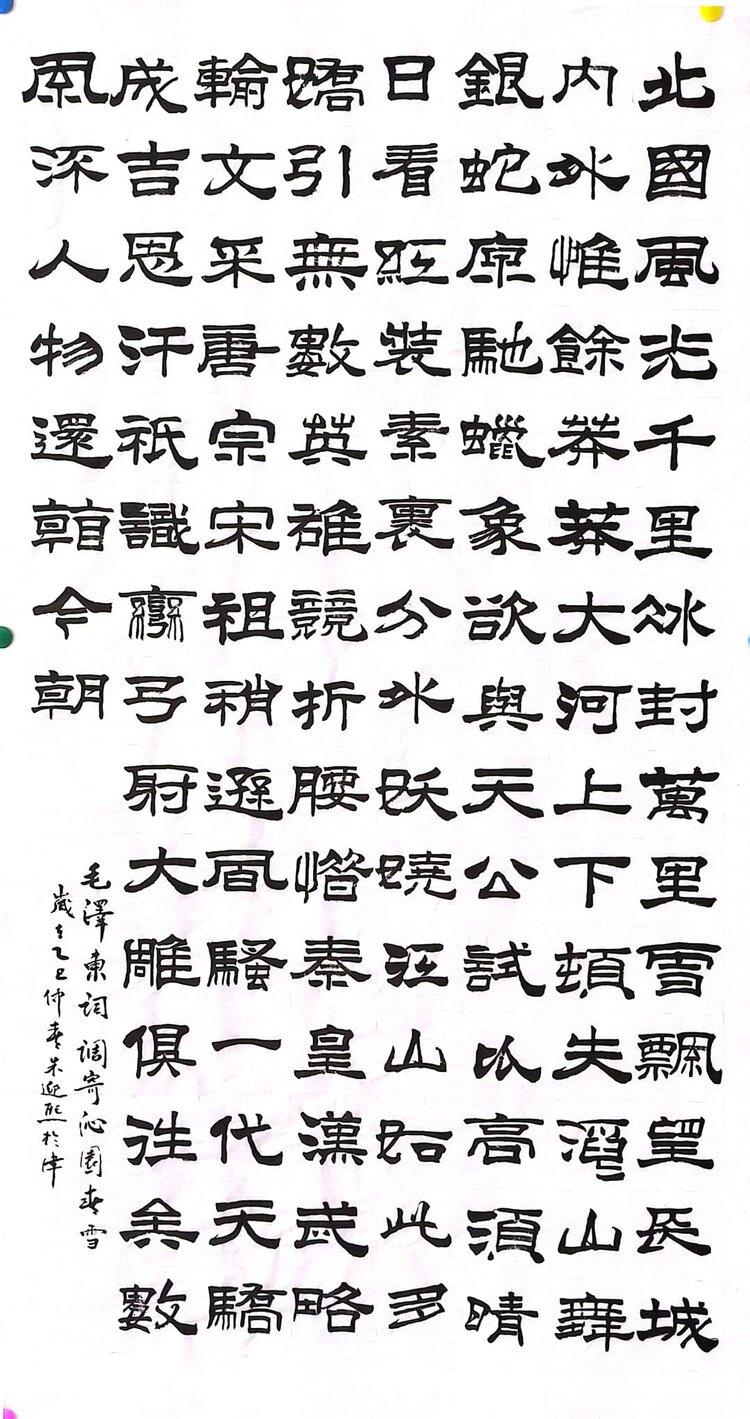 北國風光千里冰封萬里雪飄望長城
内外惟餘莽莽大河上下頓失滔〻山舞
銀蛇原馳蠟象欲與天公試比高須晴
日看紅裝素裹分外妖嬈江山如此多
嬌引無數英雄競折腰惜秦皇漢武略
輸文采唐宗宋祖稍遜風騷一代天驕
成吉思汗祇識彎弓射大雕俱往矣數
風流人物還看今朝
毛澤東詞調寄沁園春雪
歲在乙巳仲春朱迎熙於津